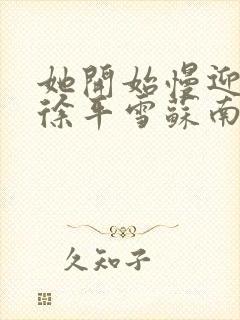 她開始慢迎
徐平雪蘇南
久知子